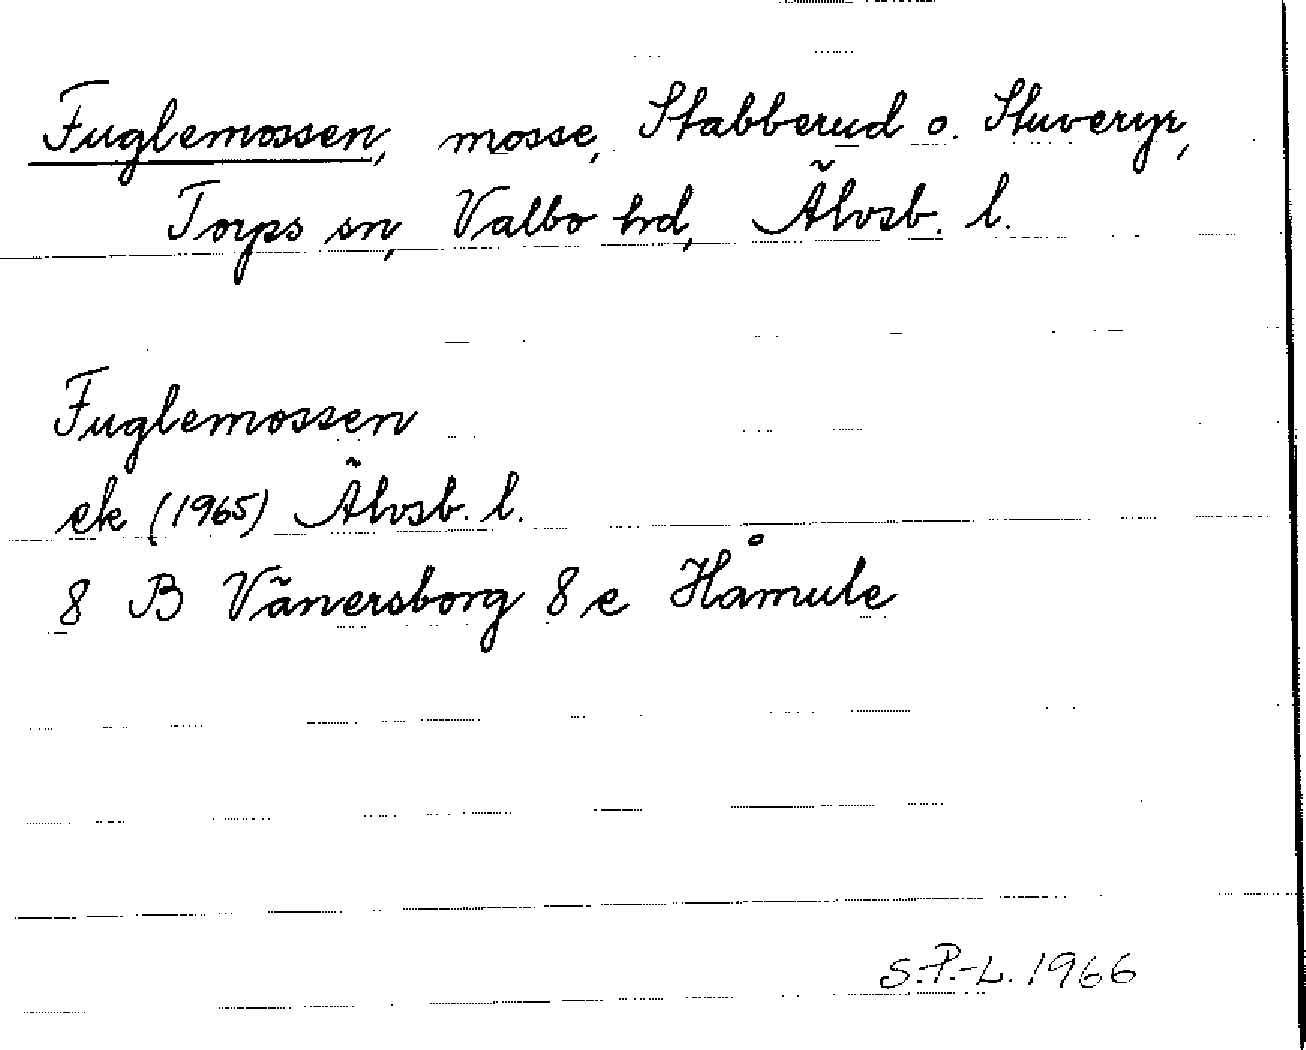 Fuglemossen, mosse, Stabberud o. Stuveryr,
Torps sn, Valbo hd, Älvsb. l.
Fuglemossen
ek (1965) Älvsb. l.
8 B Vänersborg 8 e Håmule
S.P.-L. 1966